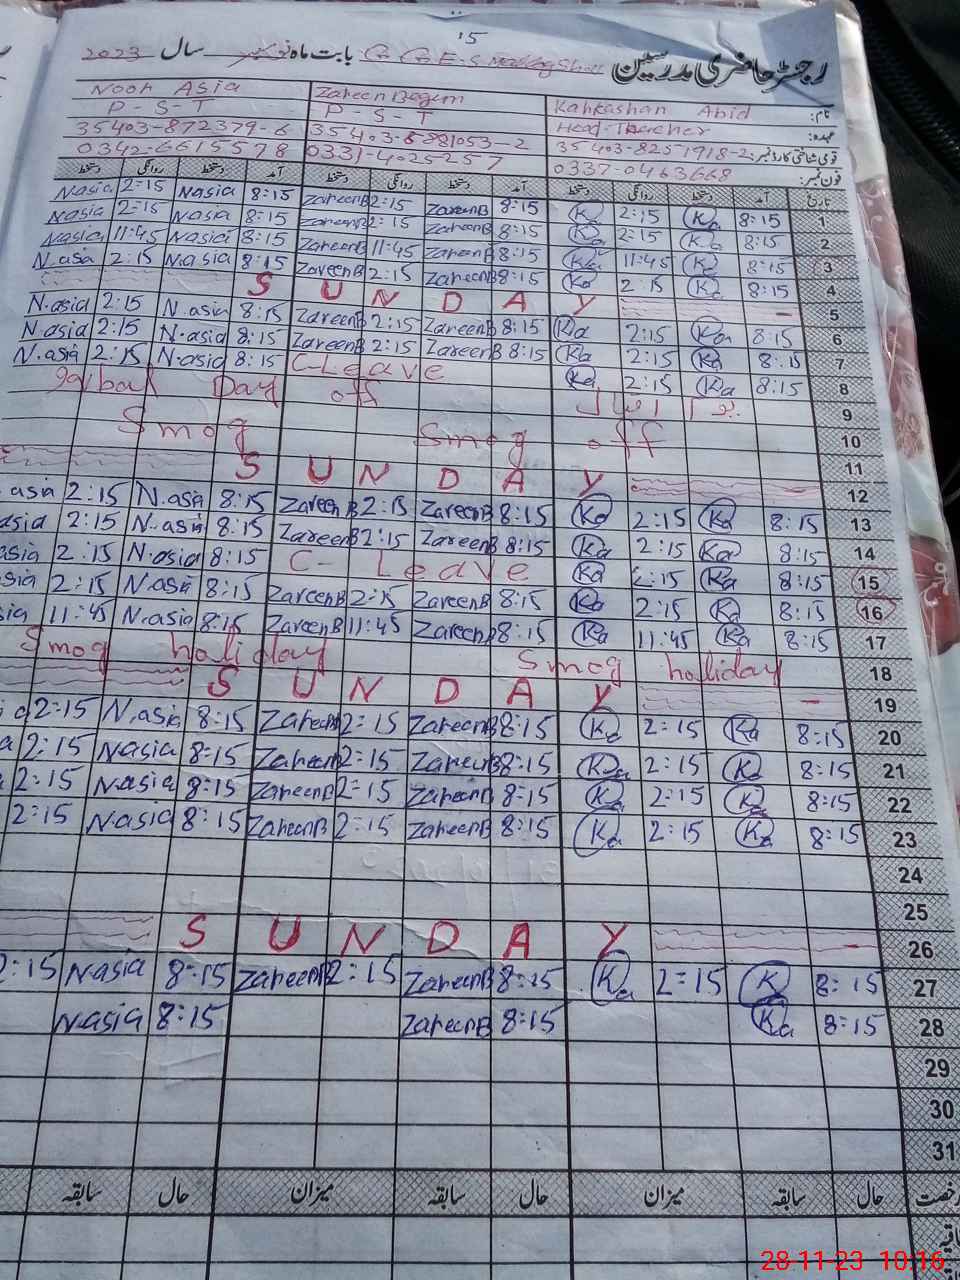 15
رجسٹر حاضری مدرسین G G E S بابت ماہ نومبر سال 2023
Noor Asia Zareen Begum Kahkashan Abid نام:
P-S-T P-S-T Head-Teacher عہدہ:
35403-872379-6 35403-8251918-2 قومی شناختی کارڈ نمبر:
0342-6615578 0331-4025257 0337-0463668 فون نمبر:
دستخط روانگی دستخط آمد دستخط روانگی دستخط آمد دستخط روانگی دستخط آمد تاریخ
Nasia 2:15 Nasia 8:15 ZareenB 2:15 ZareenB 8:15 Ka 2:15 Ka 8:15 1
Nasia 2:15 Nasia 8:15 ZareenB 2:15 ZareenB 8:15 Ka 2:15 Ka 8:15 2
Nasia 11:45 Nasia 8:15 ZareenB 11:45 ZareenB 8:15 Ka 11:45 Ka 8:15 3
N.asia 2:15 N.asia 8:15 ZareenB 2:15 ZareenB 8:15 Ka 2:15 Ka 8:15 4
S U N D A Y 5
N.asia 2:15 N.asia 8:15 ZareenB 2:15 ZareenB 8:15 Ka 2:15 Ka 8:15 6
N.asia 2:15 N.asia 8:15 ZareenB 2:15 ZareenB 8:15 Ka 2:15 Ka 8:15 7
N.asia 2:15 N.asia 8:15 C-Leave Ka 2:15 Ka 8:15 8
Day off 9
Smog Smog off 10
11
S U N D A Y 12
asia 2:15 N.asia 8:15 ZareenB 2:15 ZareenB 8:15 Ka 2:15 Ka 8:15 13
asia 2:15 N.asia 8:15 ZareenB 2:15 ZareenB 8:15 Ka 2:15 Ka 8:15 14
asia 2:15 N.asia 8:15 C-Leave Ka 2:15 Ka 8:15 15
sia 2:15 N.asia 8:15 ZareenB 2:15 ZareenB 8:15 Ka 2:15 Ka 8:15 16
sia 11:45 N.asia 8:15 ZareenB 11:45 ZareenB 8:15 Ka 11:45 Ka 8:15 17
Smog holiday Smog holiday 18
S U N D A Y 19
a 2:15 N.asia 8:15 ZareenB 2:15 ZareenB 8:15 Ka 2:15 Ka 8:15 20
a 2:15 Nasia 8:15 ZareenB 2:15 ZareenB 8:15 Ka 2:15 Ka 8:15 21
2:15 Nasia 8:15 ZareenB 2:15 ZareenB 8:15 Ka 2:15 Ka 8:15 22
2:15 Nasia 8:15 ZareenB 2:15 ZareenB 8:15 Ka 2:15 Ka 8:15 23
24
25
S U N D A Y 26
2:15 Nasia 8:15 ZareenB 2:15 ZareenB 8:15 Ka 2:15 K 8:15 27
N.asia 8:15 ZareenB 8:15 Ka 8:15 28
29
30
31
سابقہ حال میزان سابقہ حال میزان سابقہ حال رخصت
28-11-23 10:16